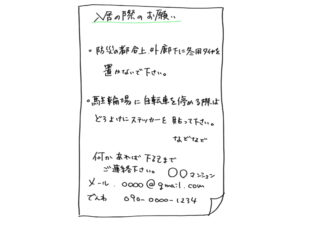 入居の際のお願い
・防災の都合上 外廊下に冬用タイヤを
置かないで下さい。
・駐輪場に自転車を停める際は
どろよけにステッカーを貼って下さい。
などなど
何かあれば下記まで
ご連絡下さい。
〇〇マンション
メール. 0000@gmail.com
でんわ 090-0000-1234